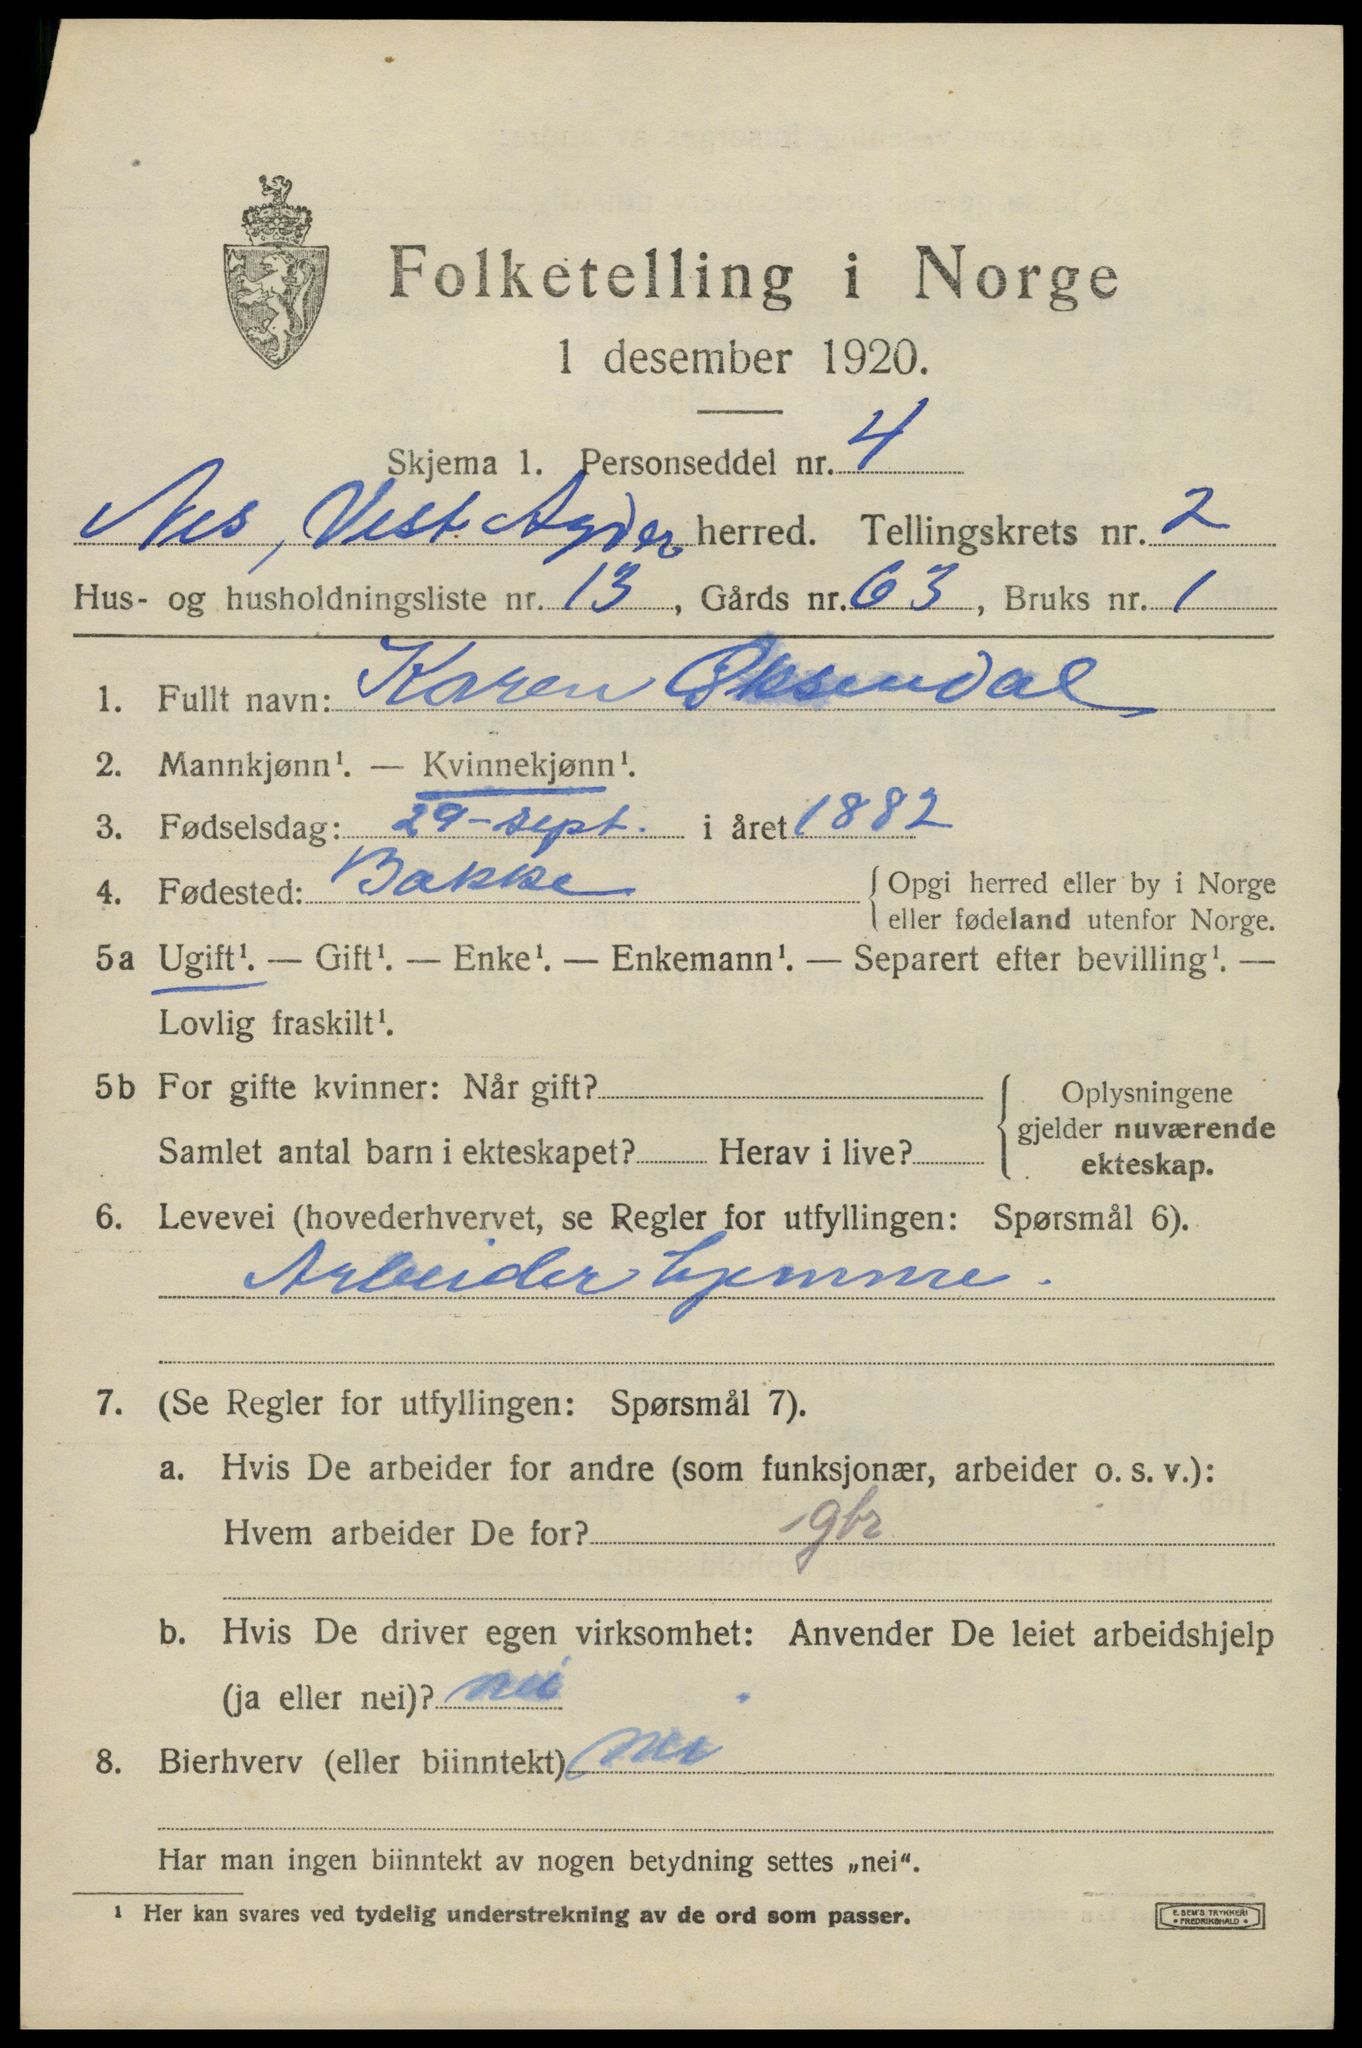 Folketelling i Norge
1 desember 1920.
Skjema 1. Personseddel nr. 4
Nes, Vest-Agder herred. Tellingskrets nr. 2
Hus- og husholdningsliste nr. 13, Gårds nr. 63, Bruks nr. 1
1. Fullt navn: Karen Øksendal
2. Mannkjønn¹. — Kvinnekjønn¹.
3. Fødselsdag: 29-sept. i året 1882
4. Fødested: Bakke {Opgi herred eller by i Norge
eller fødeland utenfor Norge.
5a Ugift¹. — Gift¹. — Enke¹. — Enkemann¹. — Separert efter bevilling¹. —
Lovlig fraskilt¹.
5b For gifte kvinner: Når gift? {Oplysningene
gjelder nuværende
Samlet antal barn i ekteskapet? Herav i live?
ekteskap.
6. Levevei (hovederhvervet, se Regler for utfyllingen: Spørsmål 6).
Arbeider hjemme.
7. (Se Regler for utfyllingen: Spørsmål 7).
a. Hvis De arbeider for andre (som funksjonær, arbeider o. s. v.):
Hvem arbeider De for? gbr
b. Hvis De driver egen virksomhet: Anvender De leiet arbeidshjelp
(ja eller nei)? nei
8. Bierhverv (eller biinntekt) nei
Har man ingen biinntekt av nogen betydning settes „nei“.
¹ Her kan svares ved tydelig understrekning av de ord som passer.
E. SEM'S TRYKKERI
• FREDRIKSHALD •